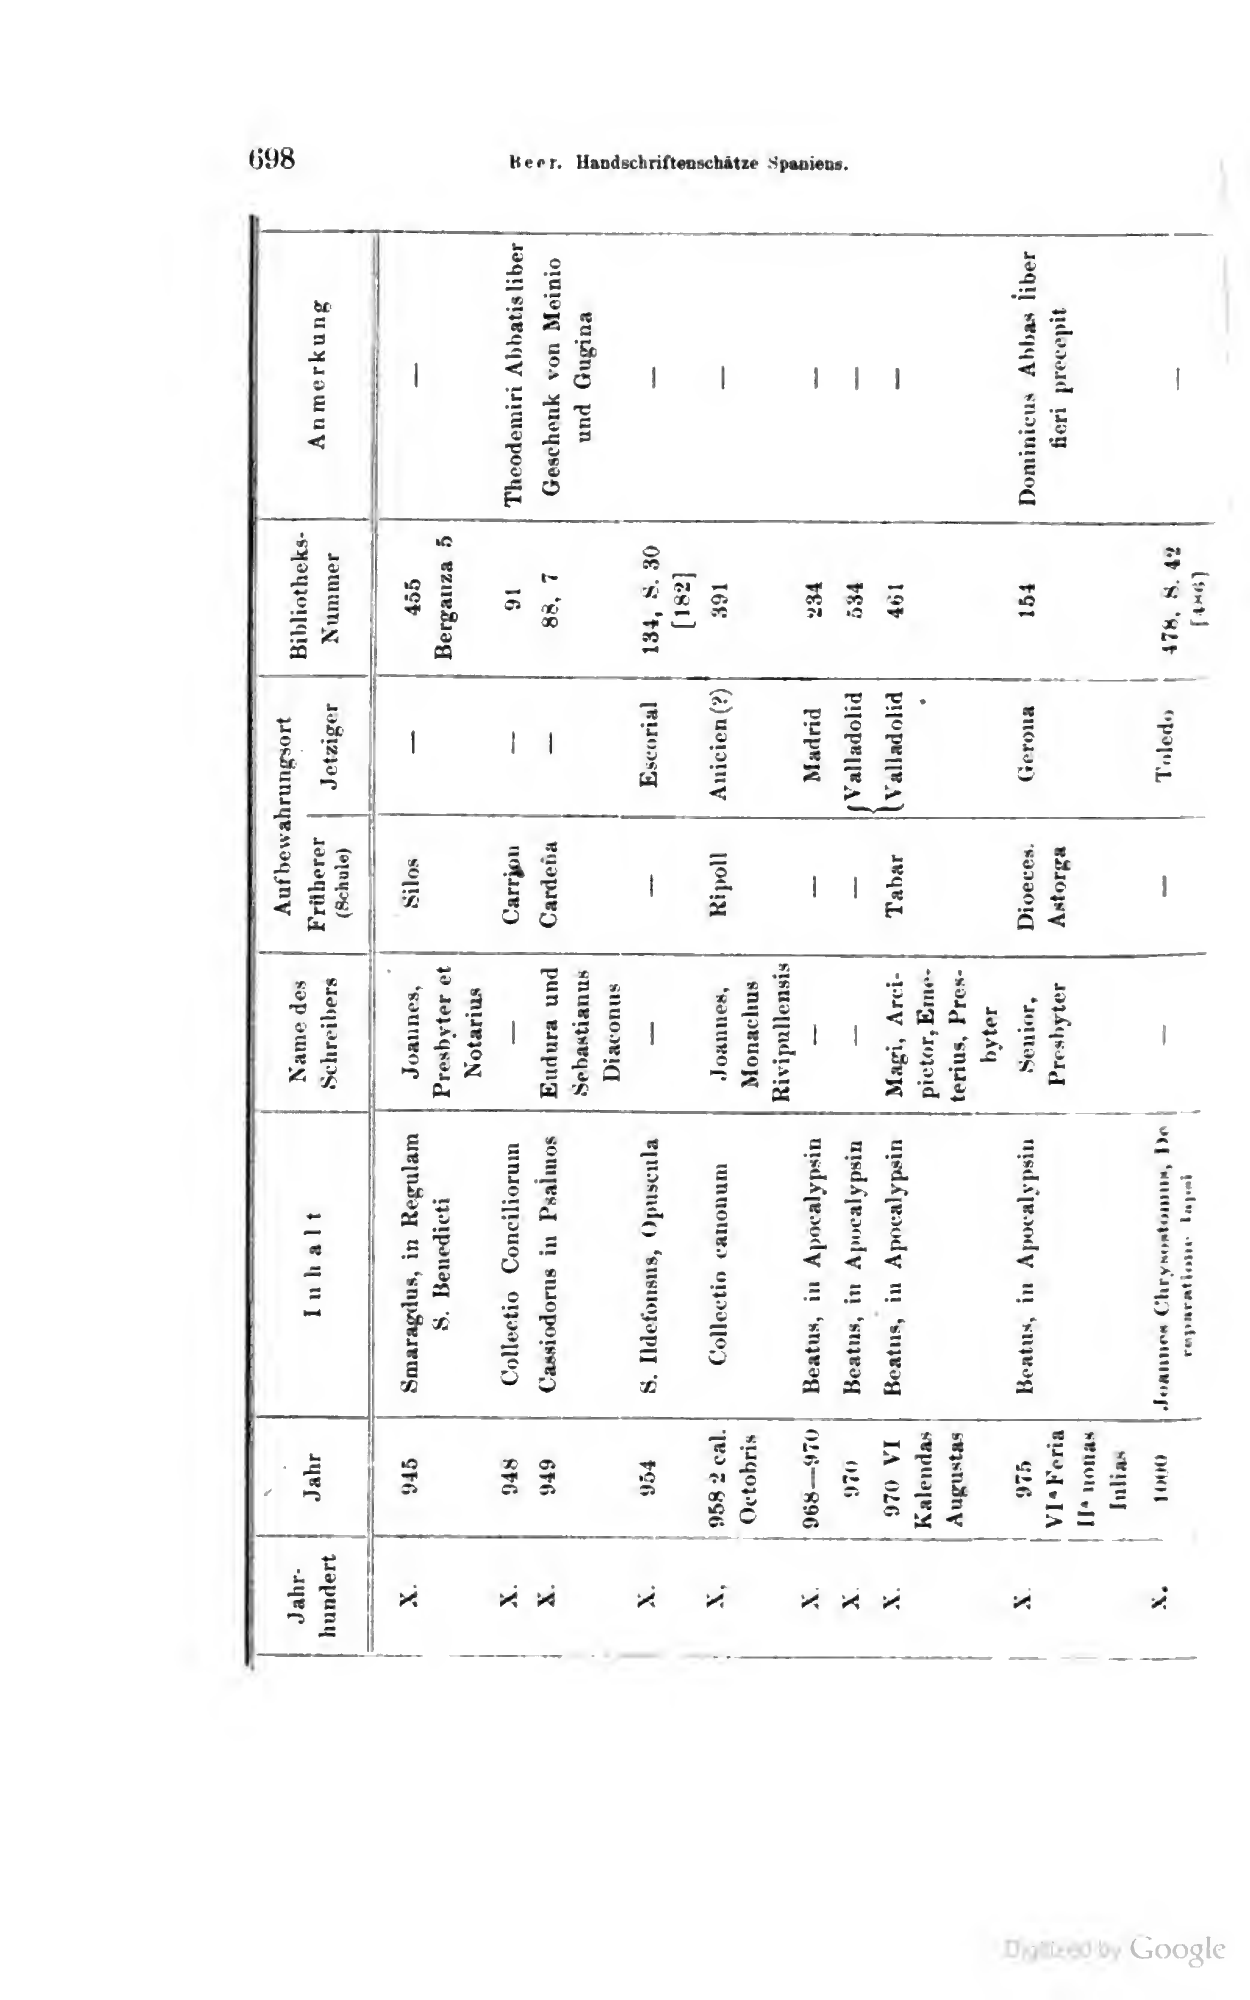 698
Beer. Handschriftenschätze Spaniens.
Jahr-
hundert
Jahr
Inhalt
Name des
Schreibers
Aufbewahrungsort
Früherer
(Schule)
Jetziger
Bibliotheks-
Nummer
Anmerkung
X.
945
Smaragdus, in Regulam
S. Benedicti
Joannes,
Presbyter et
Notarius
Silos
—
455
Berganza 5
—
X.
948
Collectio Conciliorum
—
Carrion
—
91
Theodemiri Abbatis liber
X.
949
Cassiodorus in Psalmos
Eudura und
Sebastianus
Diaconus
Cardeña
—
88, 7
Geschenk von Meinio
und Gugina
X.
954
S. Ildefonsus, Opuscula
—
—
Escorial
134, S. 30
[182]
—
X.
958 2 cal.
Octobris
Collectio canonum
Joannes,
Monachus
Rivipullensis
Ripoll
Anicien (?)
391
—
X.
968—970
Beatus, in Apocalypsin
—
—
Madrid
234
—
X.
970
Beatus, in Apocalypsin
—
—
Valladolid
534
—
X.
970 VI
Kalendas
Augustas
Beatus, in Apocalypsin
Magi, Arci-
pictor, Eme-
terius, Pres-
byter
Tabar
Valladolid
461
—
X.
975
VIa Feria
IIa nonas
Iulias
Beatus, in Apocalypsin
Senior,
Presbyter
Dioeces.
Astorga
Gerona
154
Dominicus Abbas liber
fieri precepit
X.
1000
Joannes Chrysostomus, De
reparatione lapsi
—
—
Toledo
478, S. 42
[486]
—
Digitized by Google